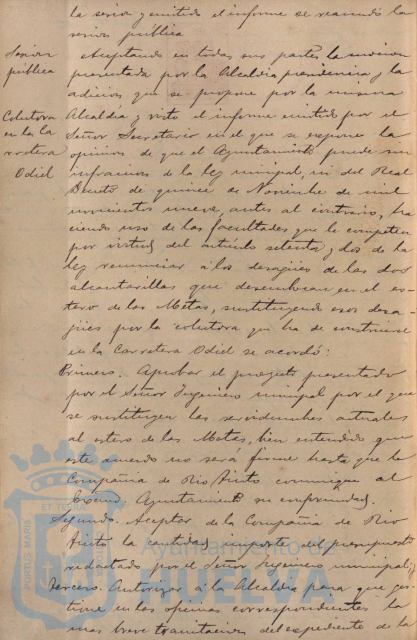 la sesion y emitido el informe se reanudó la
sesion pública
Sesion pública
Aceptando en todas sus partes la mocion
presentada por la Alcaldía presidencia y la
adicion que se propone por la misma
Colectora en la Carretera Odiel
Alcaldía y visto el informe emitido por el
Señor Secretario en el que se expone la
opinion de que el Ayuntamiento puede sin
infraccion de la ley municipal, ni del Real
Decreto de quince de Noviembre de mil
novecientos nueve, antes al contrario, ha
ciendo uso de las facultades que le competen
por virtud del artículo setenta y dos de la
ley renunciar á los desagües de las dos
alcantarillas que desembocan en el es-
tero de las Metas, sustituyendo esos desa-
gües por la colectora que ha de construirse
en la Carretera Odiel se acordó:
Primero. Aprobar el proyecto presentado
por el Señor Ingeniero municipal por el que
se sustituyen las servidumbres actuales
al estero de las Metas, bien entendido que
este acuerdo no será firme hasta que la
Compañia de Rio Tinto comunique al
Excmo. Ayuntamiento su conformidad.
Segundo. Aceptar de la Compañia de Rio
Tinto la cantidad importe del presupuesto
redactado por el Señor Ingeniero municipal y
Tercero. Autorizar á la Alcaldía para que ges-
tione en las oficinas correspondientes la
mas breve tramitacion del expediente de la
PORTUS MARIS ET TERRAE
Ayuntamiento de
HUELVA